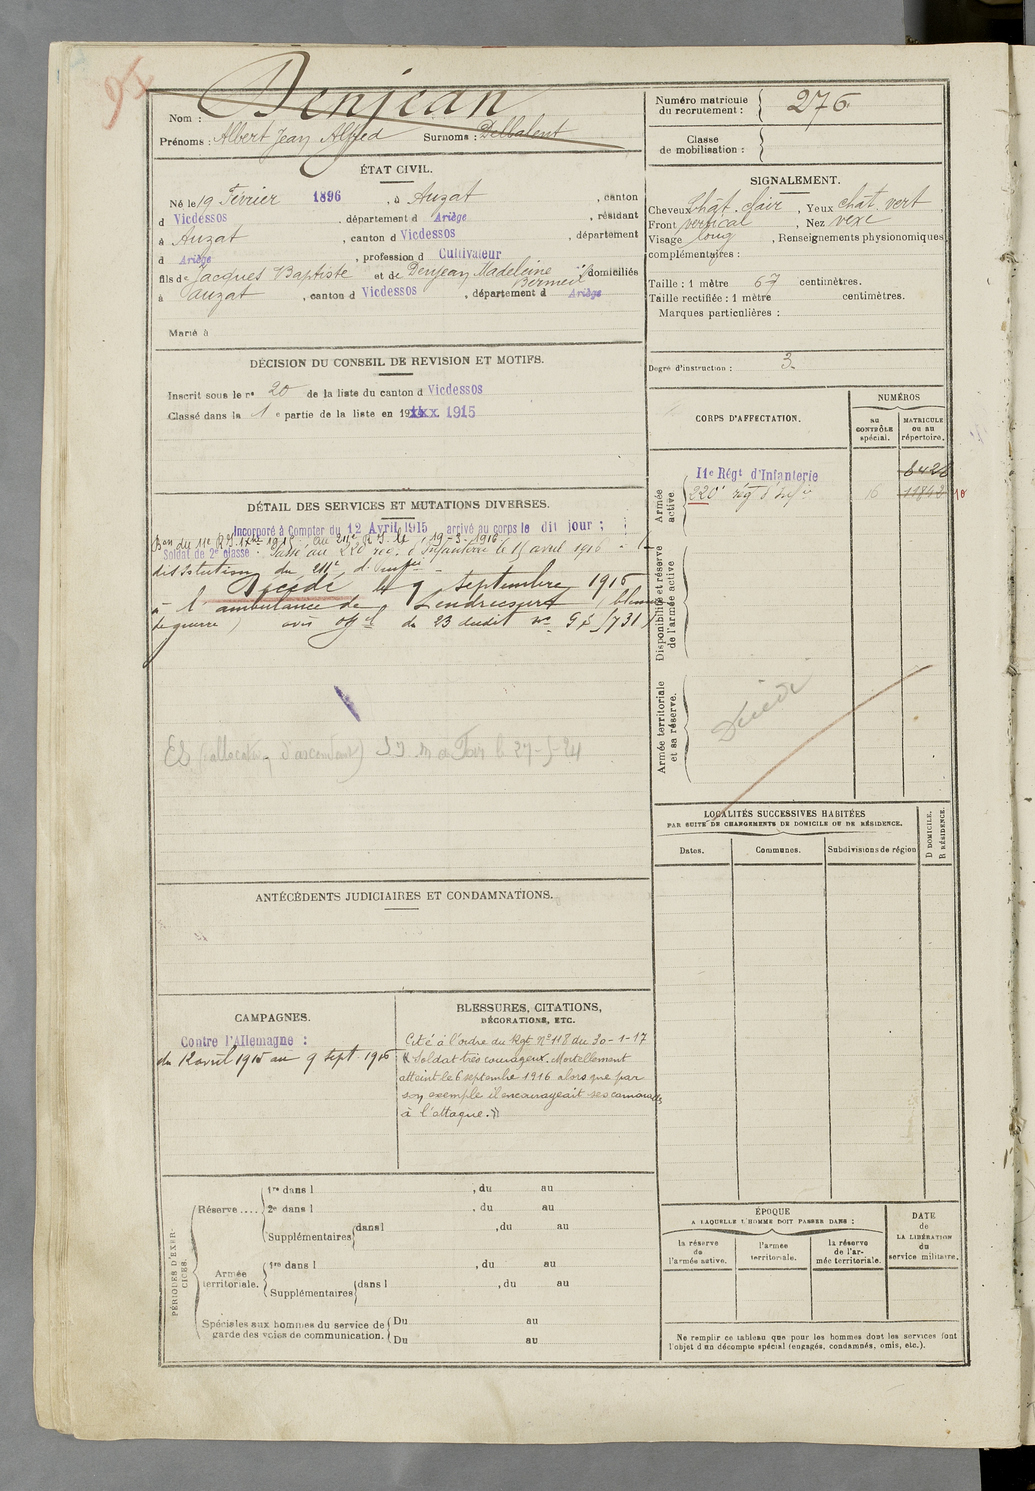 95
Nom : Denjean
Prénoms : Albert Jean Alfred Surnoms : Delbalent
Numéro matricule du recrutement : 276.
Classe de mobilisation :
ÉTAT CIVIL.
Né le 19 Février 1896, à Auzat, canton
d Vicdessos, département d Ariège, résidant
à Auzat, canton d Vicdessos, département
d Ariège, profession d Cultivateur
fils de Jacques Baptiste et de Denjean Madeleine domiciliés
à Auzat, canton d Vicdessos, département d Ariège
Marié à
SIGNALEMENT.
Cheveux Chât. clair, Yeux chât. vert
Front vertical, Nez vexe
Visage long, Renseignements physionomiques
complémentaires :
Taille : 1 mètre 67 centimètres.
Taille rectifiée : 1 mètre centimètres.
Marques particulières :
Degré d'instruction : 3.
DÉCISION DU CONSEIL DE REVISION ET MOTIFS.
Inscrit sous le n° 20 de la liste du canton d Vicdessos
Classé dans la 1e partie de la liste en 1915
CORPS D'AFFECTATION.
NUMÉROS
AU CONTRÔLE spécial.
MATRICULE OU AU répertoire.
Armée active
11e Régt d'Infanterie 6422
220e rég d'Inf 16 11842 10
Disponibilité et réserve de l'armée active
Armée territoriale et sa réserve.
Décédé
DÉTAIL DES SERVICES ET MUTATIONS DIVERSES.
Incorporé à Compter du 12 Avril 1915 arrivé au corps le dit jour ;
Soldat de 2e classe. Passé au 220 rég. d'Infanterie le 15 avril 1916
distitution du 211e d'Infie
Décédé le 9 septembre 1916
à l'ambulance de Lendrecourt
de guerre) avis offel du 23 dudit
ES (allocation d'ascendant) à Foix le 27-5-24
LOCALITÉS SUCCESSIVES HABITÉES
PAR SUITE DE CHANGEMENTS DE DOMICILE OU DE RÉSIDENCE.
Dates. Communes. Subdivisions de région
D DOMICILE. R RÉSIDENCE.
ANTÉCÉDENTS JUDICIAIRES ET CONDAMNATIONS.
CAMPAGNES.
Contre l'Allemagne :
du 12 avril 1915 au 9 sept 1916
BLESSURES, CITATIONS,
DÉCORATIONS, ETC.
Cité à l'ordre du Rgt N° 118 du 30-1-17
« Soldat très courageux. Mortellement
atteint le 6 septembre 1916 alors que par
son exemple il encourageait ses camarades
à l'attaque. »
PÉRIODES D'EXERCICES.
Réserve .... 1re dans l , du au
2e dans l , du au
Supplémentaires dans l , du au
Armée territoriale. 1re dans l , du au
Supplémentaires dans l , du au
Spéciales aux hommes du service de Du au
garde des voies de communication. Du au
ÉPOQUE
A LAQUELLE L'HOMME DOIT PASSER DANS :
la réserve de l'armée active.
l'armée territoriale.
la réserve de l'armée territoriale.
DATE de LA LIBÉRATION du service militaire.
Ne remplir ce tableau que pour les hommes dont les services font
l'objet d'un décompte spécial (engagés, condamnés, omis, etc.).